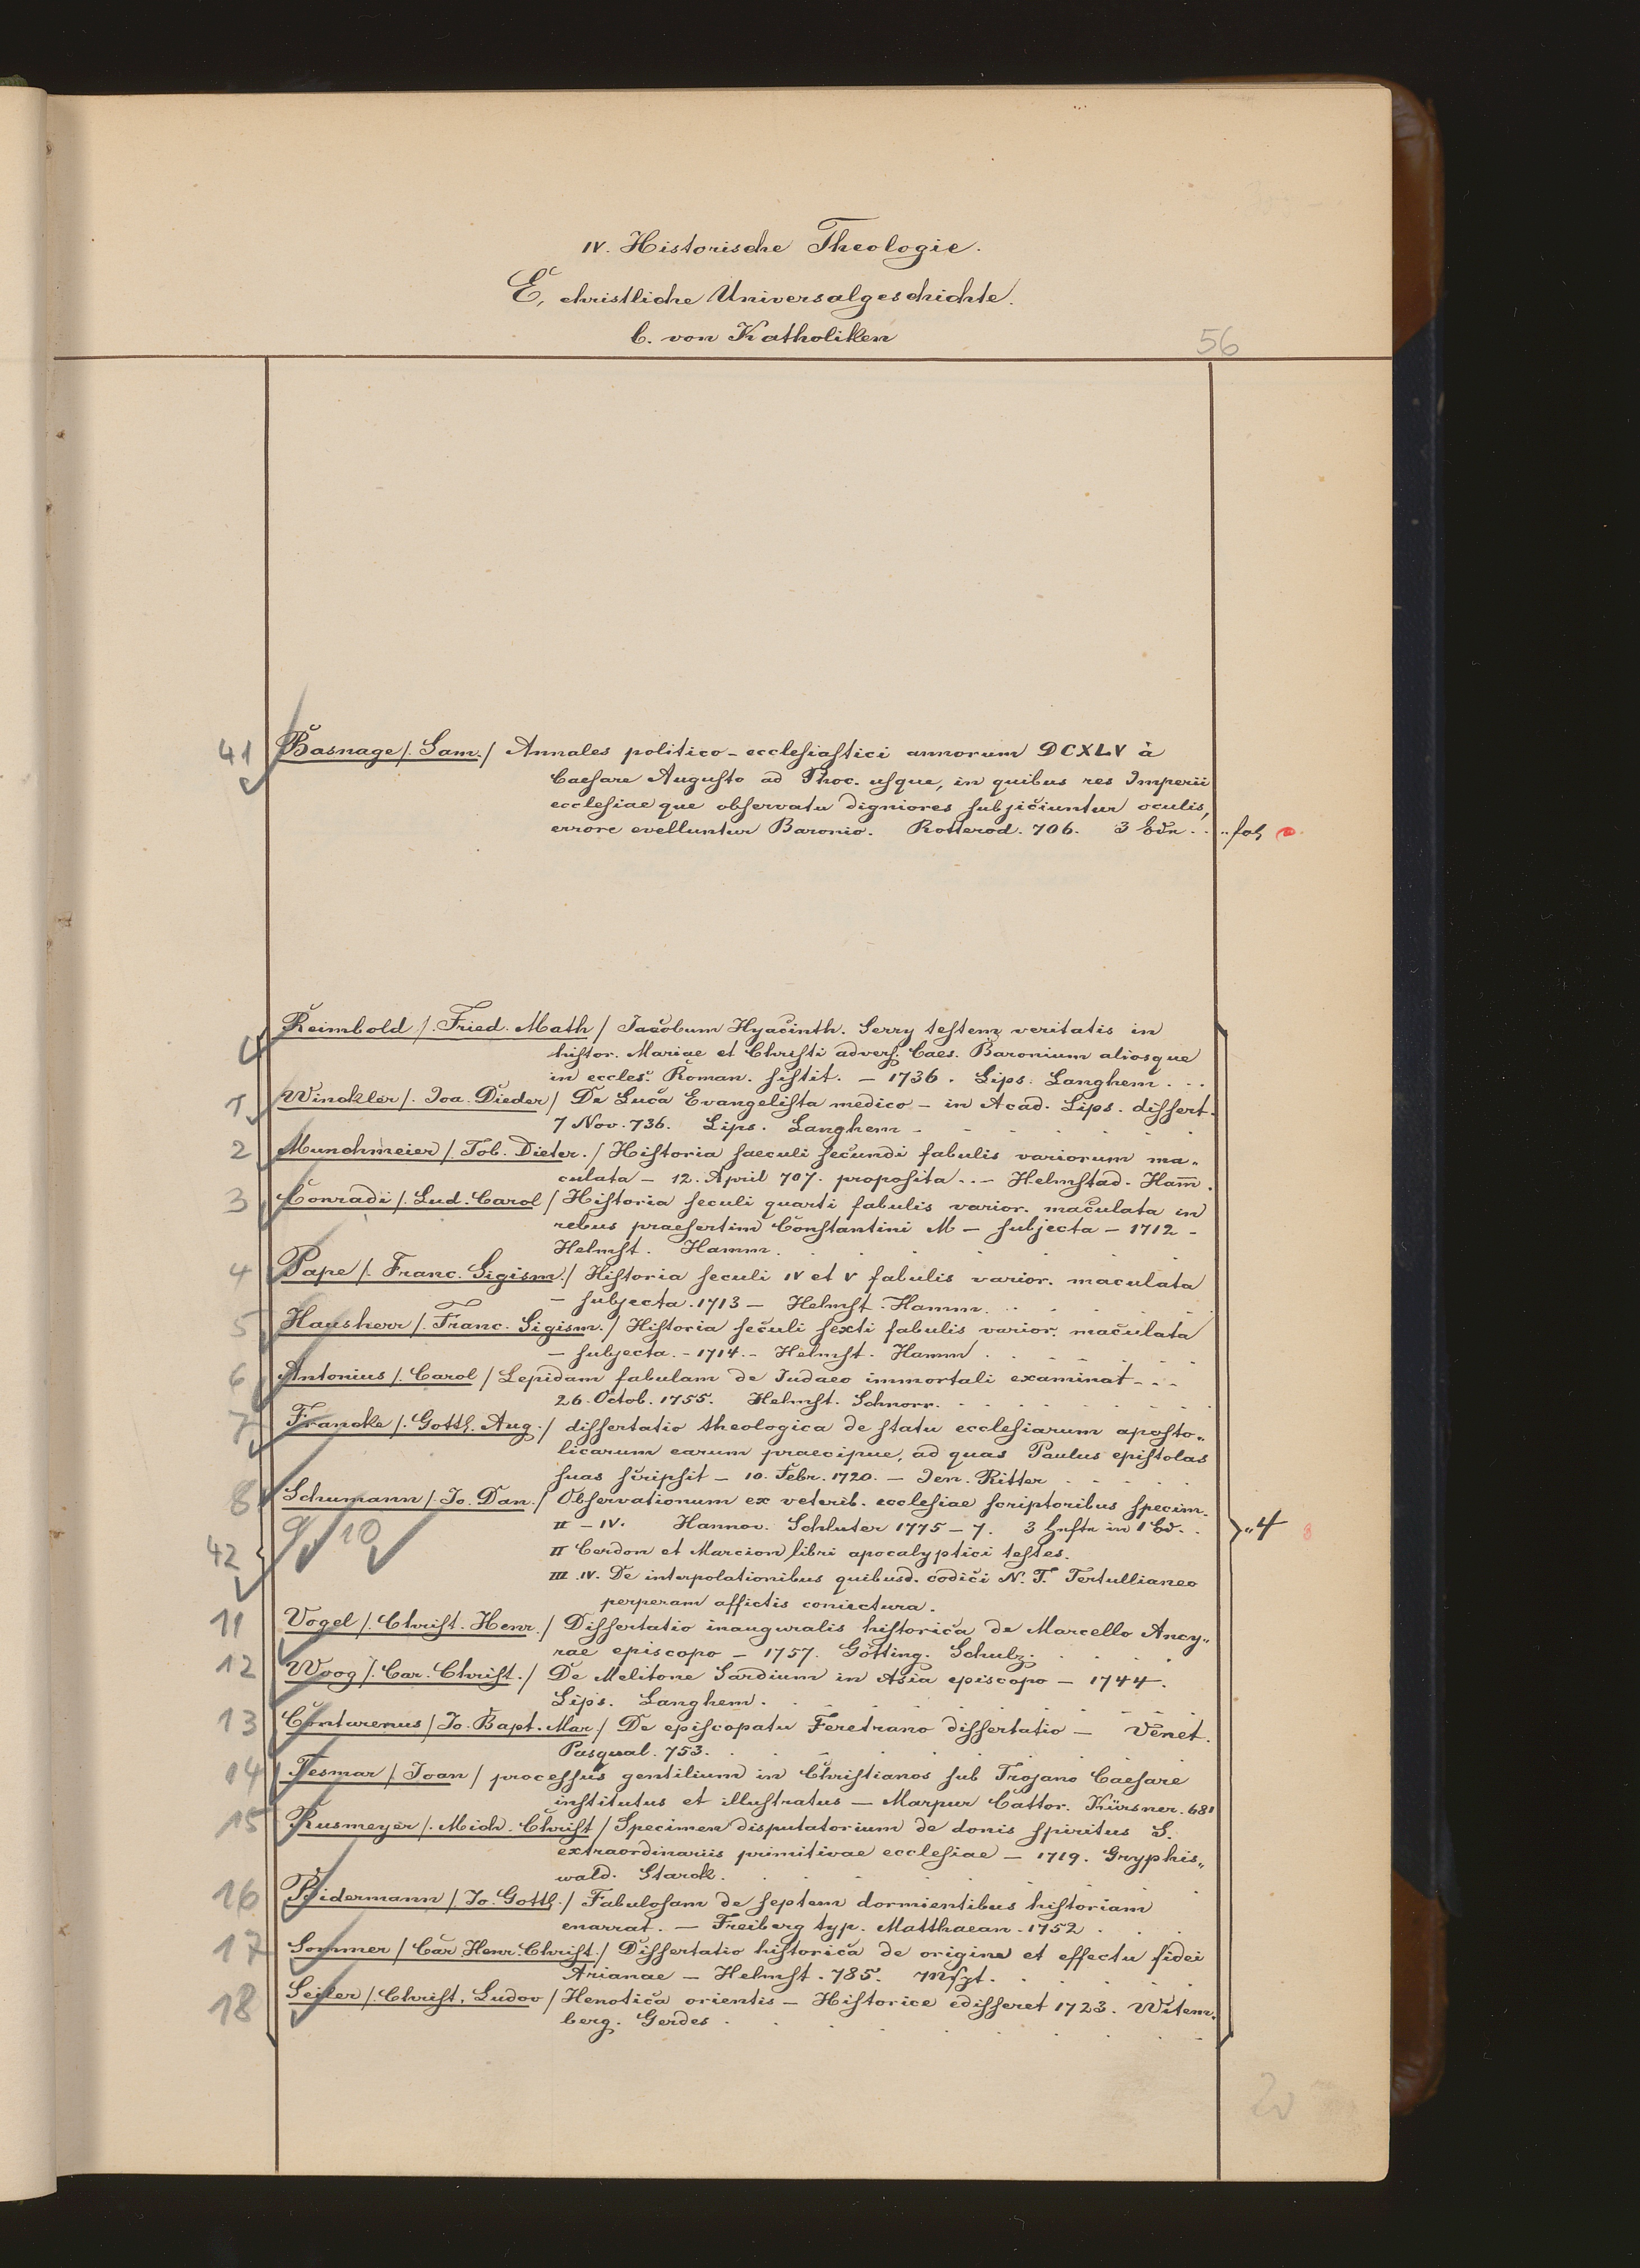 IV. Historische Theologie.
E, christliche Universalgeschichte.
b. von Katholiken
56
41 Basnage /. Sam./ Annales politico-ecclesiastici annorum DCXLV à
Caesare Augusto ad Phoc. usque, in quibus res Imperii
ecclesiaeque observatu digniores subjiciuntur oculis,
errore evelluntur Baronio. Rotterod. 706. 3 Bde. . . fol
Reimbold /. Fried. Math / Jacobum Hyacinth. Serry testem veritatis in
histor. Mariae et Christi advers. Caes. Baronium aliosque
in eccles. Roman. sistit. – 1736. Lips. Langhem. . .
1 Winckler /. Joa. Dieder / De Luca Evangelista medico – in Acad. Lips. dissert.
7 Nov. 736. Lips. Langhem –
2 Munchmeier /. Tob. Dieter. / Historia saeculi secundi fabulis variorum ma„
culata – 12. April 707. proposita . . – Helmstad. Ham̅.
3 Conradi /. Lud. Carol / Historia seculi quarti fabulis varior. maculata in
rebus praesertim Constantini M – subjecta – 1712 –
Helmst. Hamm.
4 Pape /. Franc. Sigism./ Historia seculi IV et V fabulis varior. maculata
– subjecta. 1713 – Helmst. Hamm.
5 Hausherr /. Franc. Sigism. / Historia seculi sexti fabulis varior. maculata
– subjecta. – 1714. – Helmst. Hamm.
6 Antonius /. Carol / Lepidam fabulam de Judaeo immortali examinat – . –
26. Octob. 1755. Helmst. Schnorr.
7 Francke /. Gottl. Aug. / dissertatio theologica de statu ecclesiarum aposto„
licarum earum praecipue, ad quas Paulus epistolas
suas scripsit – 10. Febr. 1720. – Jen. Ritter
8 Schumann /. Jo. Dan. / Observationum ex veterib. ecclesiae scriptoribus specim.
9 10 II – IV. Hannov. Schluter 1775 – 7. 3 Hefte in 1 Bd. . „4 8
42 II Cerdon et Marcion libri apocalyptici testes.
III. IV. De interpolationibus quibusd. codici N. T. Tertullianeo
perperam affictis coniectura.
11 Vogel /. Christ. Henr. / Dissertatio inauguralis historica de Marcello Ancy„
rae episcopo – 1757. Götting. Schulz.
12 Woog /. Car. Christ. / De Melitone Sardium in Asia episcopo – 1744.
Lips. Langhem.
13 Contarenus / Jo. Bapt. Mar. / De episcopatu Feretrano dissertatio – Venet.
Pasqual. 753.
14 Tesmar /. Joan / processus gentilium in Christianos sub Trojano Caesare
institutus et illustratus – Marpur Cattor. Kürsner. 681
15 Rusmeyer /. Mich. Christ / Specimen disputatorium de donis spiritus S.
extraordinariis primitivae ecclesiae – 1719. Gryphis„
wald. Starck.
16 Bidermann /. Jo. Gottl. / Fabulosam de septem dormientibus historiam
enarrat. – Freiberg typ. Matthaean. 1752.
17 Sommer / Car Henr Christ / Dissertatio historica de origine et effectu fidei
Arianae – Helmst. 785.
18 Seiler /. Christ. Ludov / Henotica orientis – Historice edisseret 1723. Witem„
berg. Gerdes
20